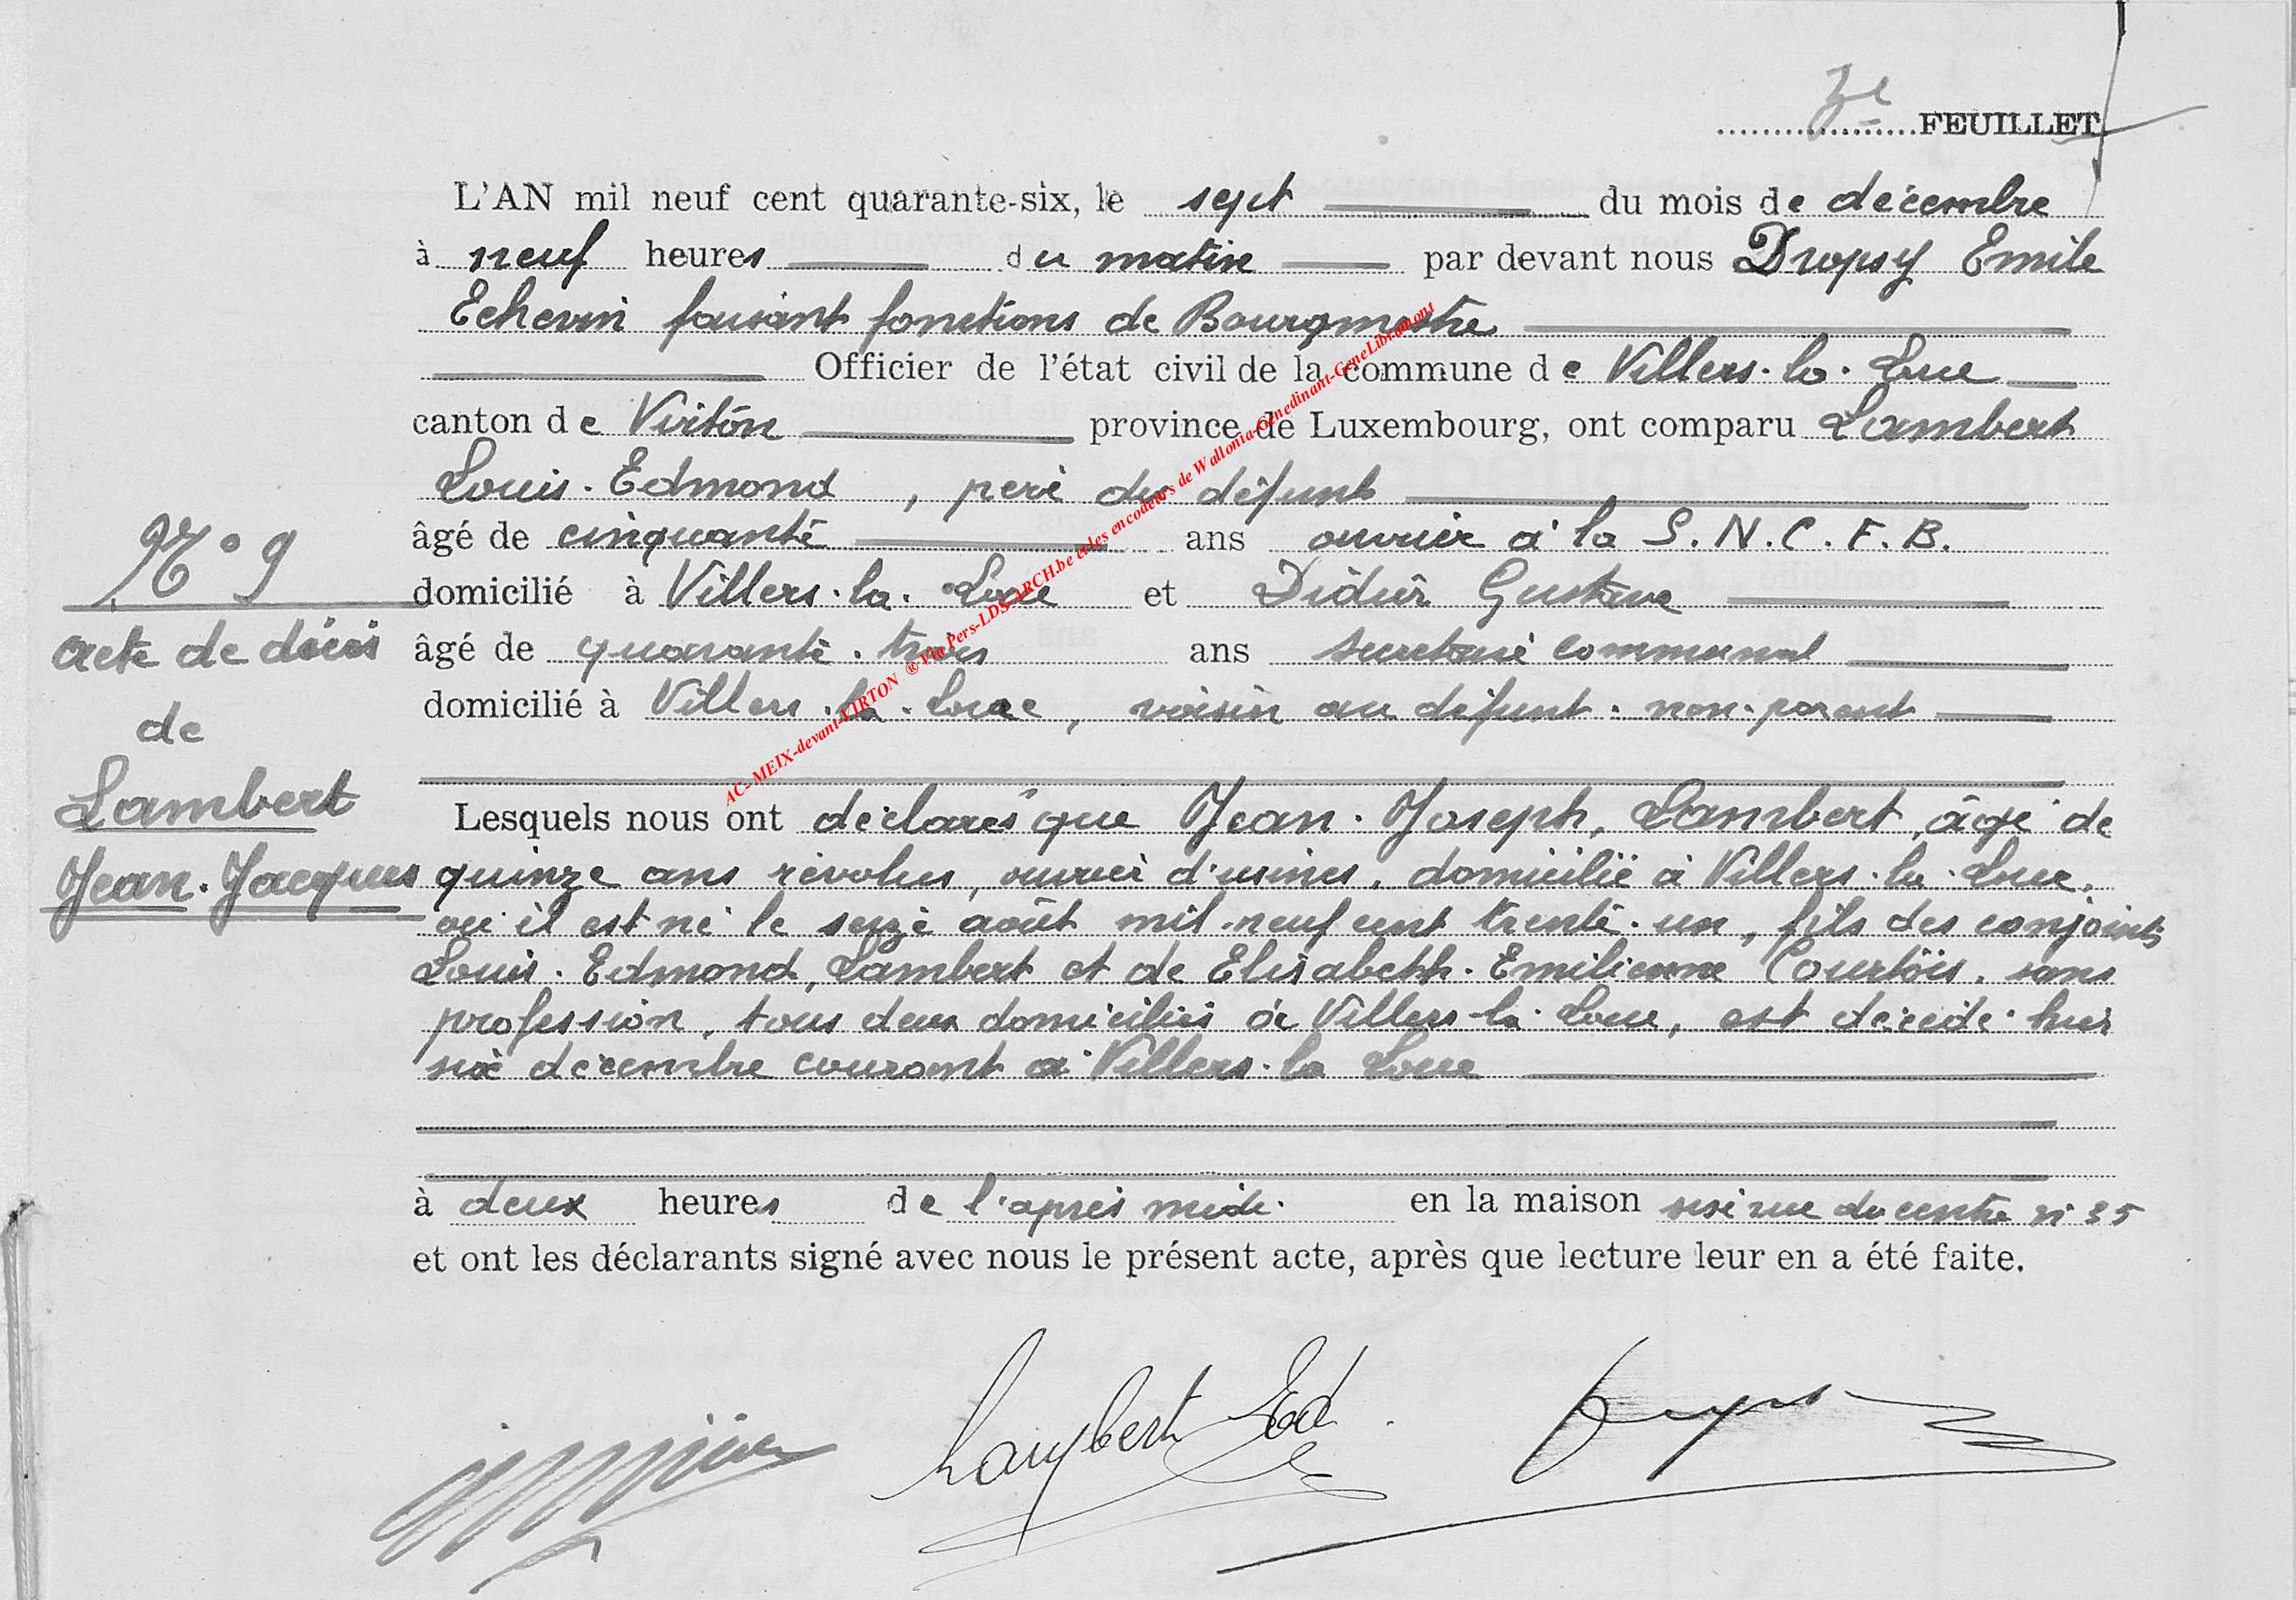 3e FEUILLET
L'AN mil neuf cent quarante-six, le sept du mois de décembre
à neuf heures du matin par devant nous Dropsy Emile
Echevin faisant fonctions de Bourgmestre
Officier de l'état civil de la commune de Villers-la-Loue
canton de Virton province de Luxembourg, ont comparu Lambert
Louis-Edmond, père du défunt
âgé de cinquante ans ouvrier à la S.N.C.F.B.
domicilié à Villers-la-Loue et Didier Gustave
âgé de quarante-trois ans secrétaire communal
domicilié à Villers-la-Loue, voisin au défunt - non-parent
N° 9
acte de décès
de
Lambert
Jean-Jacques
Lesquels nous ont déclarés que Jean-Joseph, Lambert, âgé de
quinze ans révolus, ouvrier d'usines, domicilié à Villers-la-Loue,
où il est né le seize août mil-neuf cent trente-un, fils des conjoints
Louis-Edmond, Lambert et de Elisabeth-Emilienne Courtois, sans
profession, tous deux domiciliés à Villers-la-Loue, est décédé hier
six décembre courant à Villers-la Loue
à deux heures de l'après midi. en la maison sise rue du centre n° 35
et ont les déclarants signé avec nous le présent acte, après que lecture leur en a été faite.
Lambert Ed
AC-MEIX-devant-VIRTON ® Via Pers-LDS-ARCH.be et les encodeurs de Wallonia-Genedinant-GeneLibramont